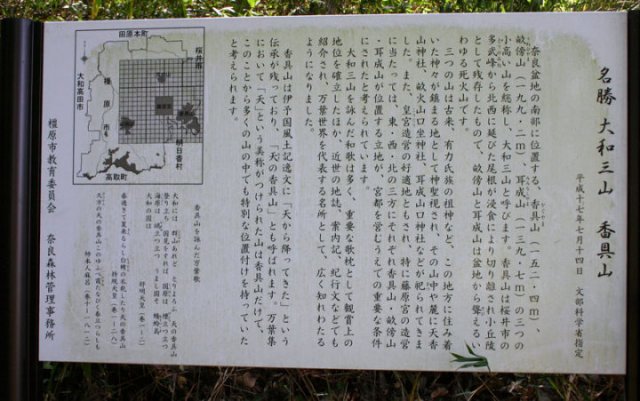 名勝 大和三山 香具山
平成十七年七月十四日 文部科学省指定
奈良盆地の南部に位置する、香具山(一五二・四m)、
畝傍山(一九九・二m)、耳成山(一三九・七m)の三つの
小高い山を総称し、大和三山と呼びます。香具山は桜井市の
多武峰から北西に延びた尾根が浸食により切り離され小丘陵
として残存したもので、畝傍山と耳成山は盆地から聳えるい
わゆる死火山です。
三つの山は古来、有力氏族の祖神など、この地方に住み着
いた神々が鎮まる地として神聖視され、その山中や麓に天香
山神社、畝火山口坐神社、耳成山口神社などが祀られてきま
した。また、皇宮造営の好適地ともされ、特に藤原宮の造営
に当たっては、東・西・北の三方にそれぞれ香具山・畝傍山
・耳成山が位置する立地が、宮都を営むうえでの重要な条件
にされたと考えられています。
大和三山を詠みだ和歌は多く、重要な歌枕として観賞上の
地位を確立したほか、近世の地誌、案内記、紀行文などでも
紹介され、万葉世界を代表する名所として、広く知れわたる
ようになりました。
香具山は伊予国風土記逸文に「天から降ってきた」という
伝承が残っており、「天の香具山」とも呼ばれます。万葉集
において「天」という美称がつけられた山は香具山だけで、
このことから多くの山の中でも特別な位置付けを持っていた
と考えられます。
香具山を詠んだ万葉歌
大和には 群山あれど とりよろふ 天の香具山
登り立ち 国見をすれば 国原は 煙立つ立つ
海原は 鴎立つ立つ うまし国そ 蜻蛉島
大和の国は
舒明天皇(巻一・二)
春過ぎて夏来るらし白栲の衣乾したり天の香具山
持統天皇(巻一・二八)
久方の天の香具山このゆふべ霞たなびく春立つらしも
柿本人麻呂(巻十・一八一二)
橿原市教育委員会 奈良森林管理事務所
田原本町
桜井市
大和高田市
橿原市
明日香村
高取町